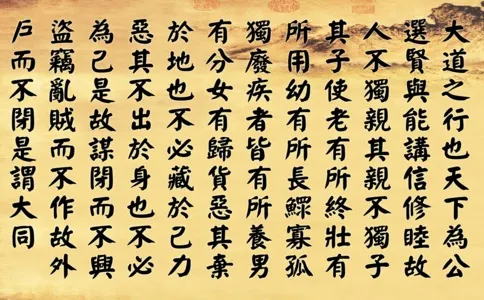 大道之行也天下為公
選賢與能講信修睦故
人不獨親其親不獨子
其子使老有所終壯有
所用幼有所長鰥寡孤
獨廢疾者皆有所養男
有分女有歸貨惡其棄
於地也不必藏於己力
惡其不出於身也不必
為己是故謀閉而不興
盜竊亂賊而不作故外
戶而不閉是謂大同